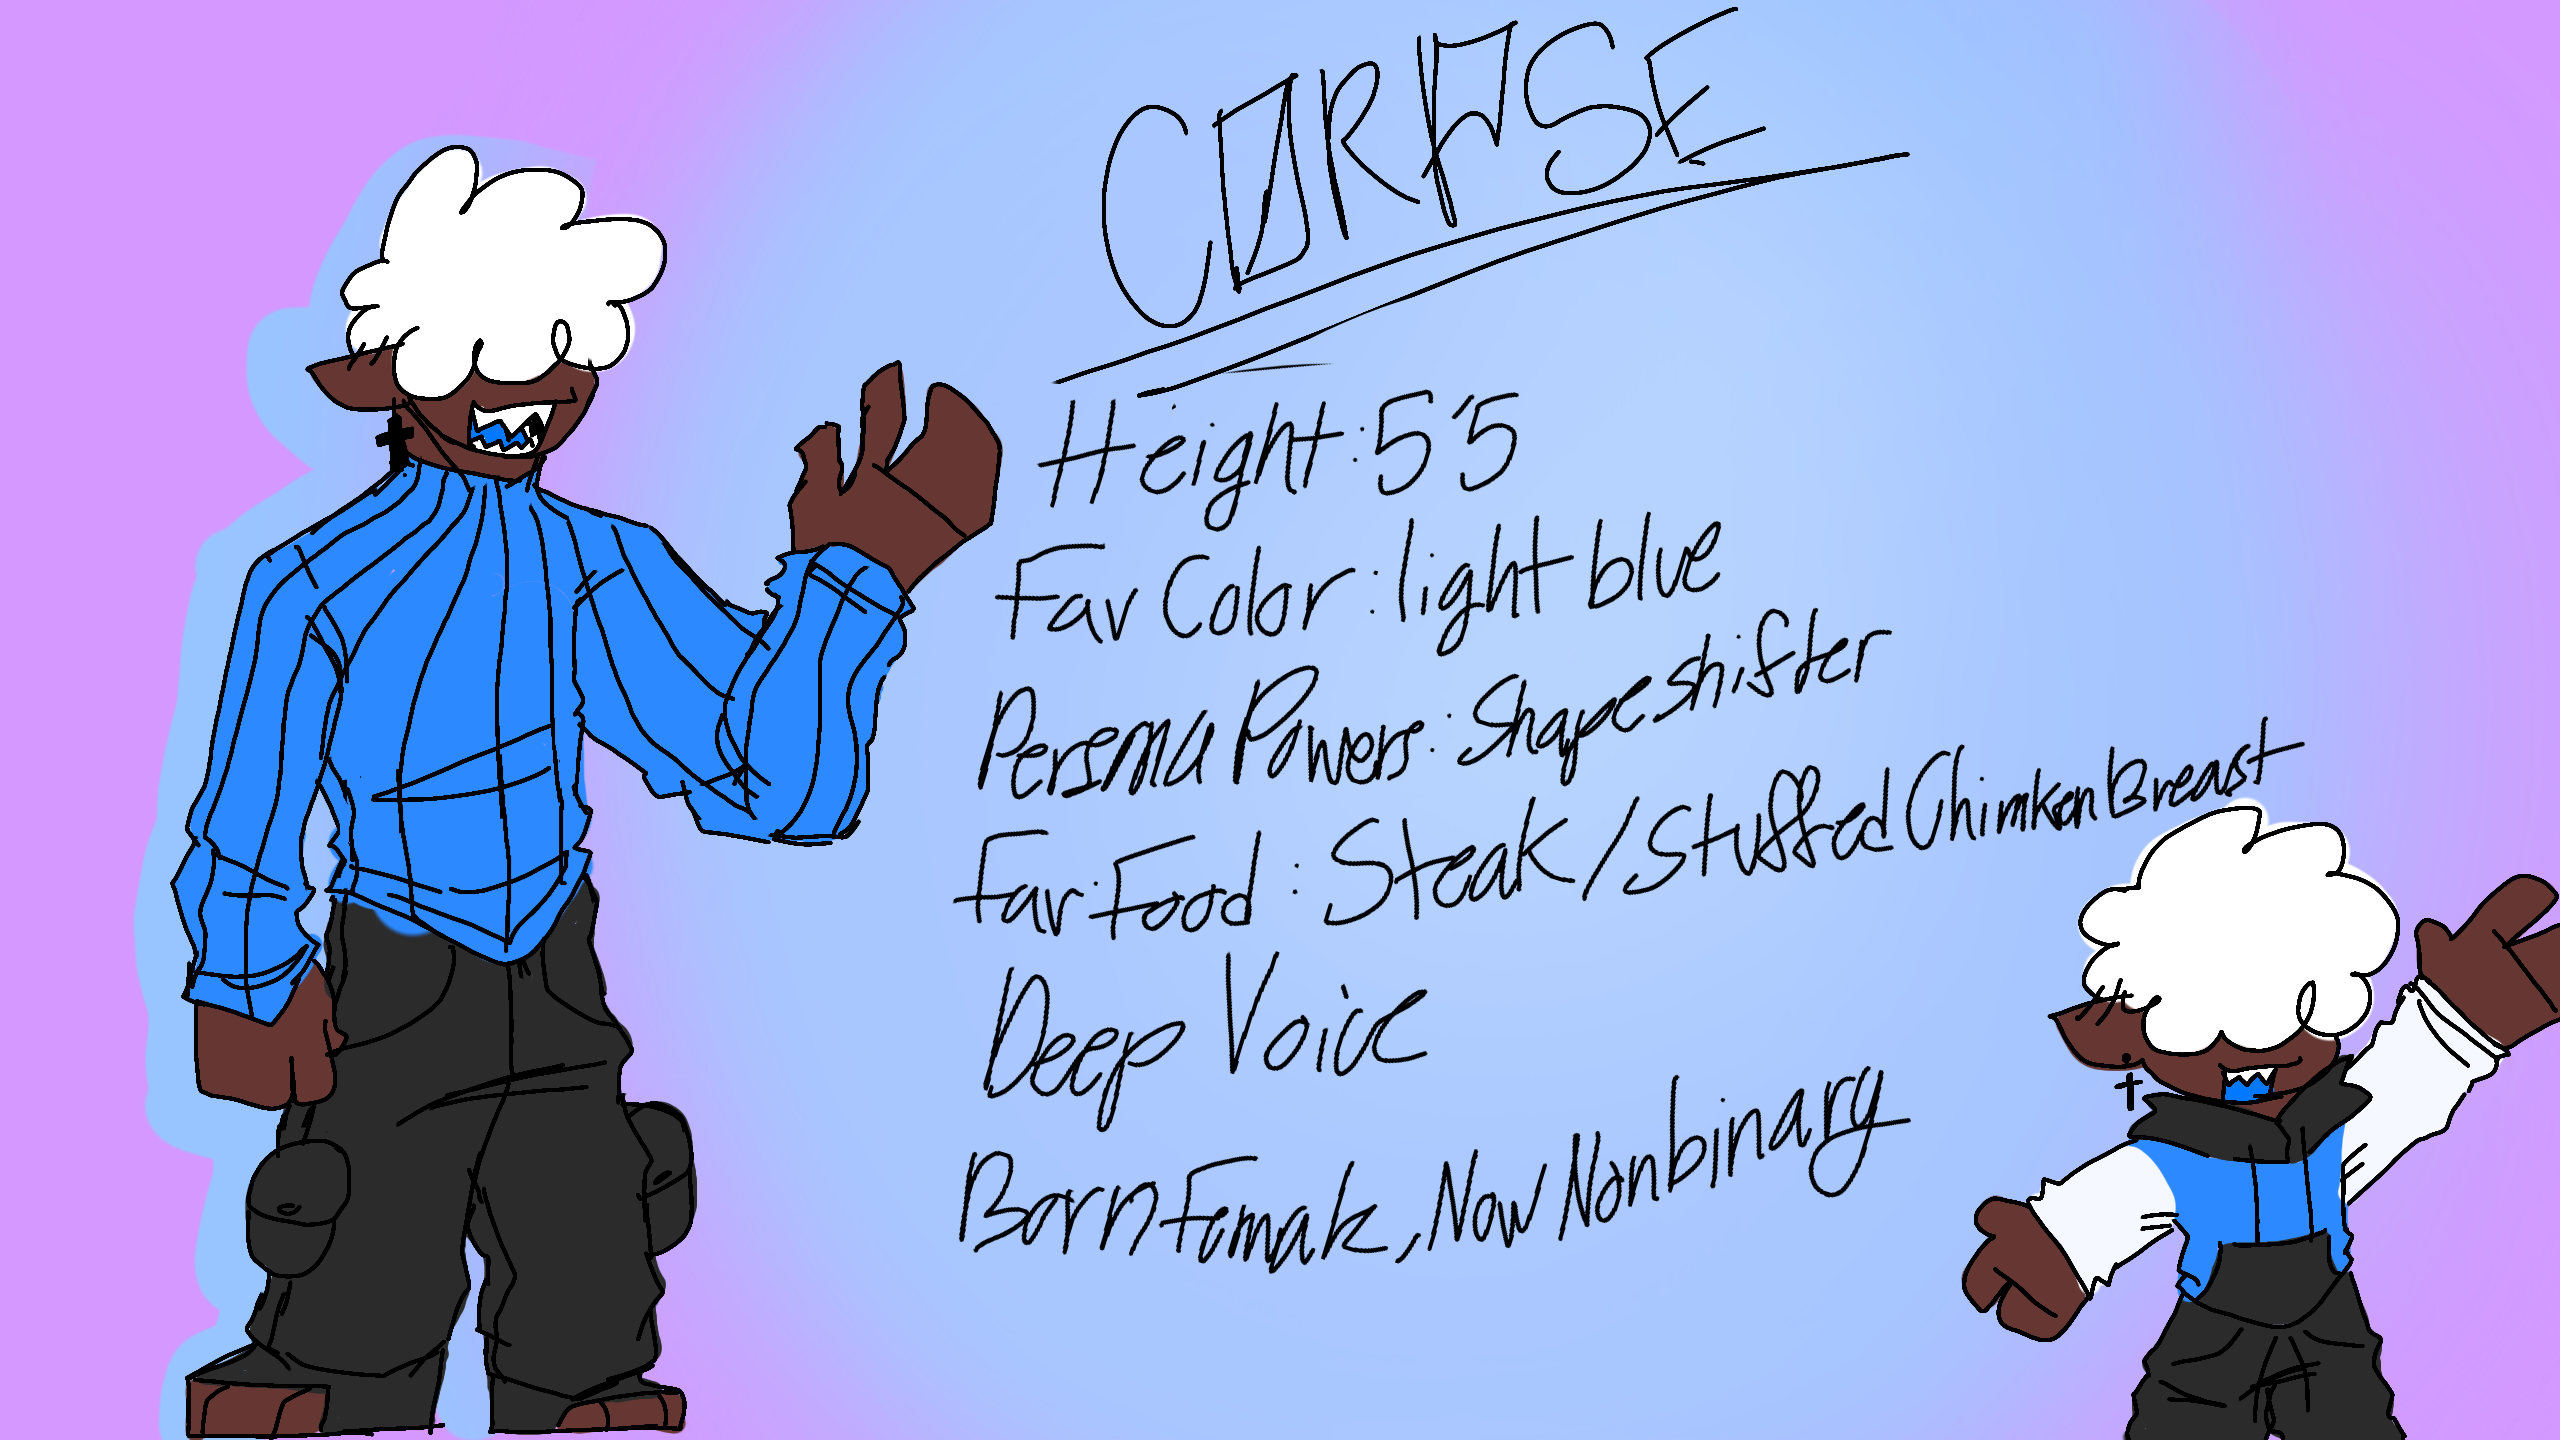 CORPSE
Height: 5'5
Fav Color: light blue
Persona Powers: Shapeshifter
Fav. Food: Steak/Stuffed Chimken Breast
Deep Voice
Born Female, Now Nonbinary